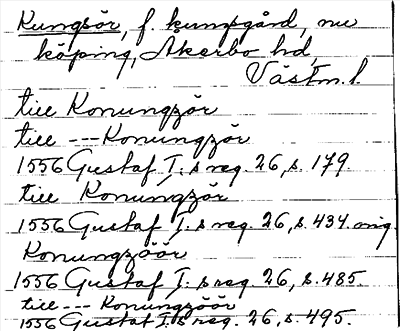 Kungsör, f. kungsgård, nu
köping, Åkerbo hd,
Västm. l.
till Konungzör
till --- Konungzör
1556 Gustaf I:s reg. 26, s. 179
till Konungzör
1556 Gustaf I:s reg. 26, s. 434 orig.
Konungzöör
1556 Gustaf I:s reg. 26, s. 485.
till --- Konungzöör
1556 Gustaf I:s reg. 26, s. 495.